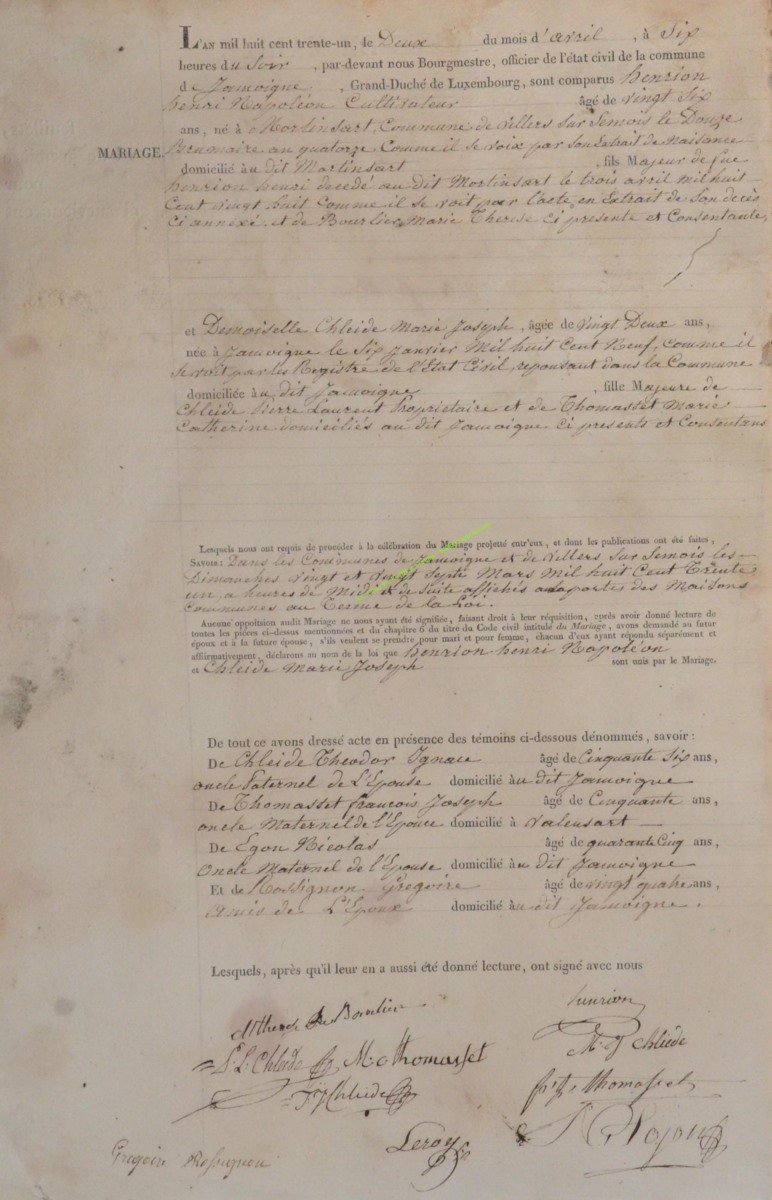 L'AN mil huit cent trente-un, le Deux du mois d'avril, à Six
heures du Soir, par-devant nous Bourgmestre, officier de l'état civil de la commune
de Jamoigne, Grand-Duché de Luxembourg, sont comparus henrion
henri Napoléon Cultivateur âgé de vingt Six
ans, né à Mortinsart, Commune de villers sur Semois le Douze
MARIAGE.
Brumaire an quatorze Comme il se voix par son Extrait de Naisance
domicilié au dit Martinsart, fils Majeur de fue
henrion henri decedé au dit Mortinsart le trois avril mil huit
Cent vingt huit Comme il se voit par l'acte en Extrait de Son decès
Ci annixé. et de Bourlier Marie Therese Ci presente et Consentante,
et Demoiselle Chleide Marie Joseph, âgée de Vingt Deux ans,
née à Jamoigne le Six Janvier Mil huit Cent Neuf, Comme il
Se voit par les Registre de l'Etat Civil, reposant dans la Commune
domiciliée au dit Jamoigne, fille Majeure de
Chleide Pierre Laurent Propriètaire et de Thomasset Marie
Catherine domiciliés au dit Jamoigne Ci presents et Consentans
Lesquels nous ont requis de procéder à la célébration du Mariage projetté entr'eux, et dont les publications ont été faites,
SAVOIR: Dans les Communes de Jamoigne et de Villers Sur Semois les
Dimanches Vingt et Vingt Sept Mars Mil huit Cent Trente
un a heures de Midi et de Suite affichés aux portes des Maisons
Communes au Terme de la Loi.
Aucune opposition audit Mariage ne nous ayant été signifiée, faisant droit à leur réquisition, après avoir donné lecture de
toutes les pièces ci-dessus mentionnées et du chapitre 6 du titre du Code civil intitulé du Mariage, avons demandé au futur
époux et à la future épouse, s'ils veulent se prendre pour mari et pour femme, chacun d'eux ayant répondu séparément et
affirmativement, déclarons au nom de la loi que henrion henri Napoléon
a Chleide Marie Joseph sont unis par le Mariage.
De tout ce avons dressé acte en présence des témoins ci-dessous dénommés, savoir:
De Chleide Theodor Ignace âgé de Cinquante Six ans,
oncle Paternel de L'Epouse domicilié au dit Jamoigne
De Thomasset françois Joseph âgé de Cinquante ans,
oncle Maternel de l'Epouce domicilié à Valensart
De Egon Nicolas âgé de quarante Cinq ans,
Oncle Maternel de l'Epouse domicilié au dit Jamoigne
Et de Rossignon Gregoire âgé de vingt quatre ans,
Amis de L'Epoux domicilié au dit Jamoigne.
Lesquels, après qu'il leur en a aussi été donné lecture, ont signé avec nous
henrion
M. J. Chleide
P. L. Chleide M. C. Thomasset
Chleide
thomasset
Leroy
Gregoire Rossignon